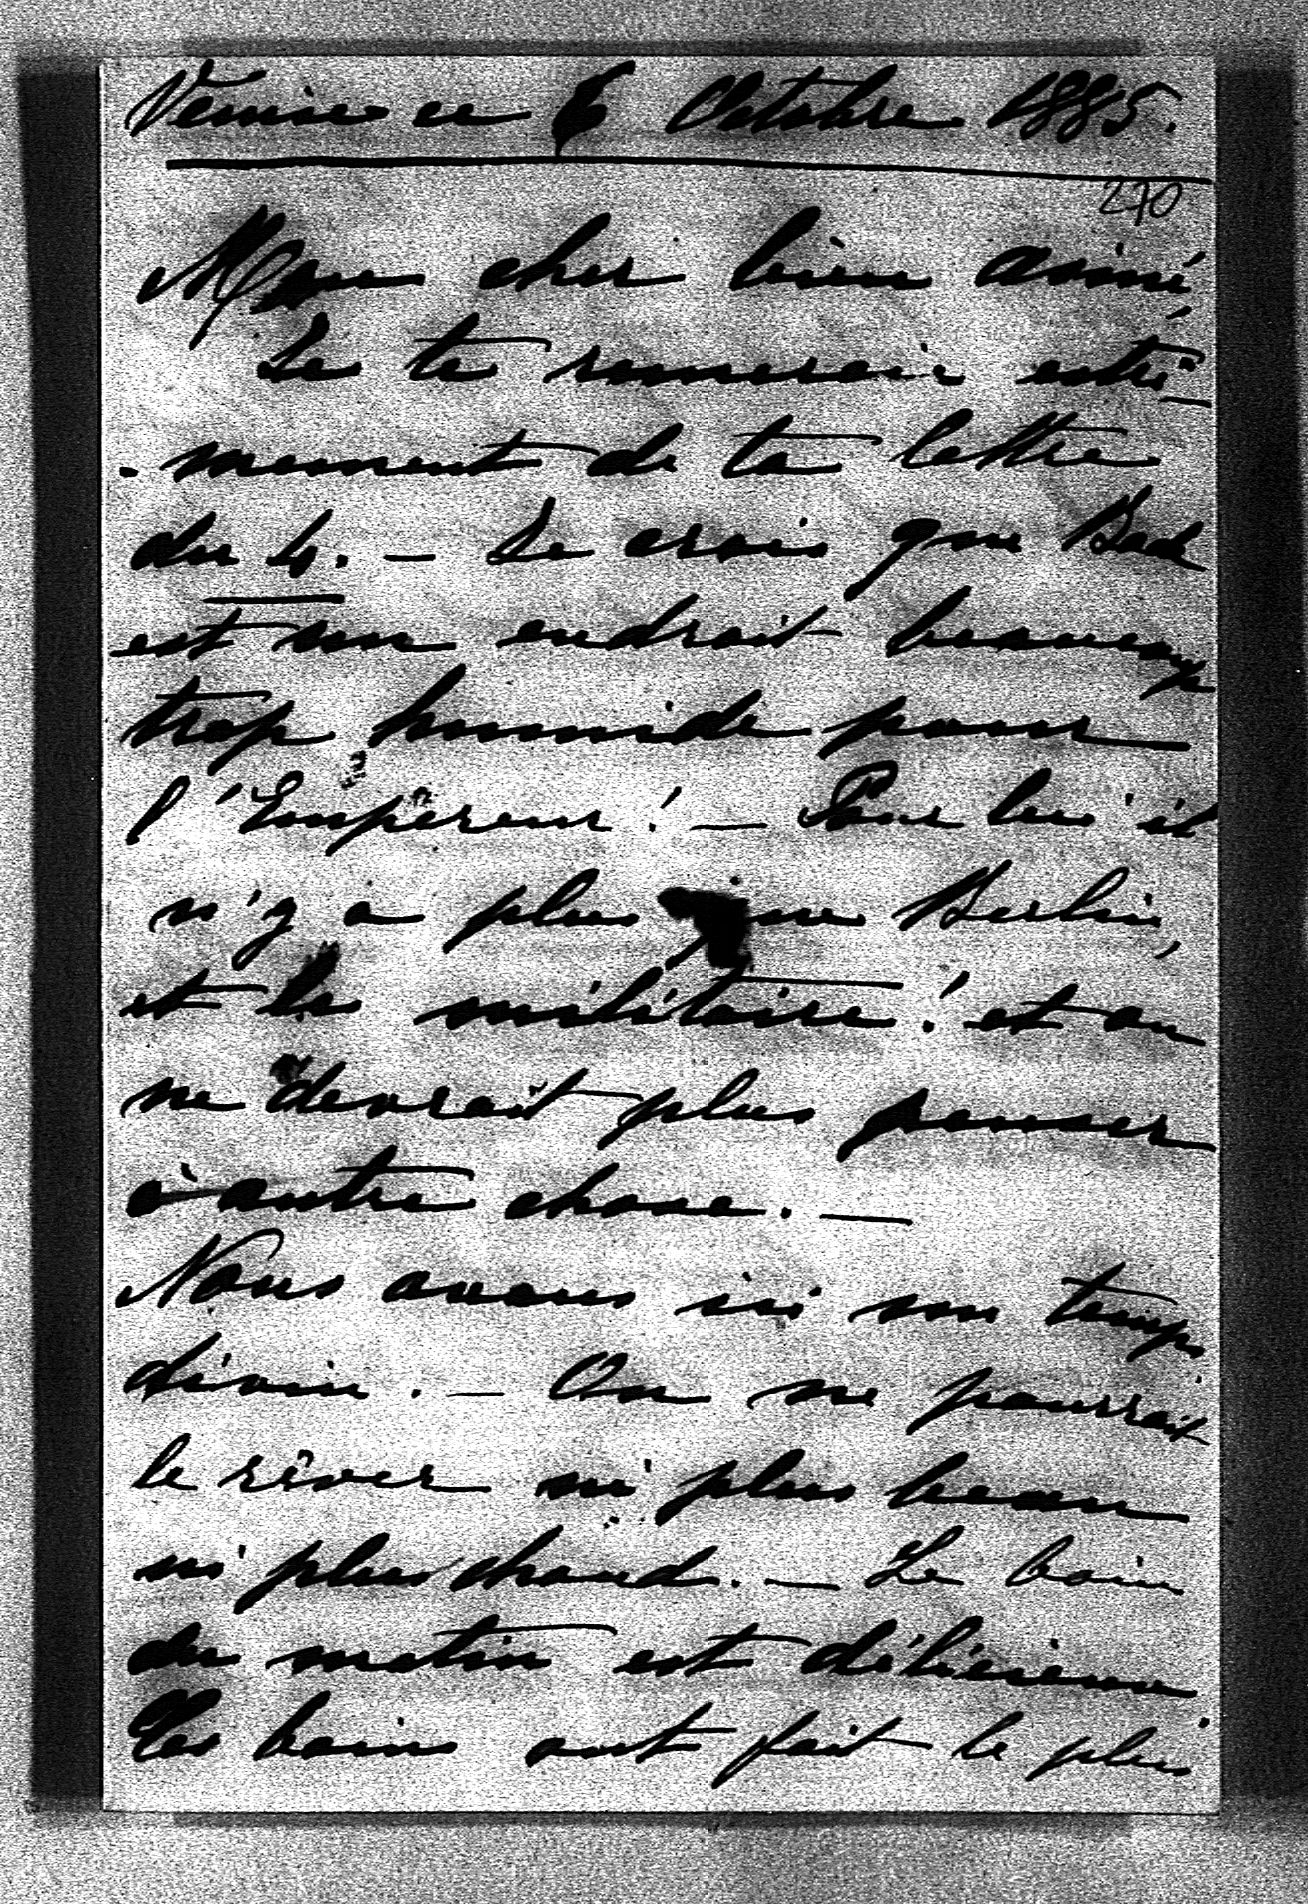 Venise ce 6 Octobre 1885.
270
Mon cher bien aimé,
Je te remercie entiè-
-rement de ta lettre
du 4. — Je crois que Bade
est un endroit beaucoup
trop humide pour
l'Empereur! — Pour lui il
n'y a plus que Berlin,
et le militaire! et on
ne devrait plus penser
à autre chose. —
Nous avons ici un temps
divin. — On ne pourrait
le rêver ni plus beau
ni plus chaud. — Le bain
du matin est délicieux
Les bains ont fait le plus